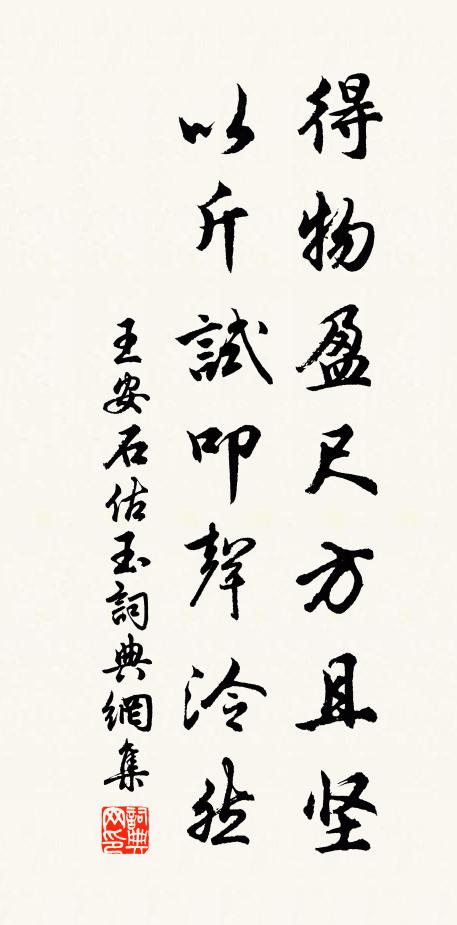 得物盈尺方且坚
以斤試叩聲泠然
王安石估玉詞典網集
詞典网印